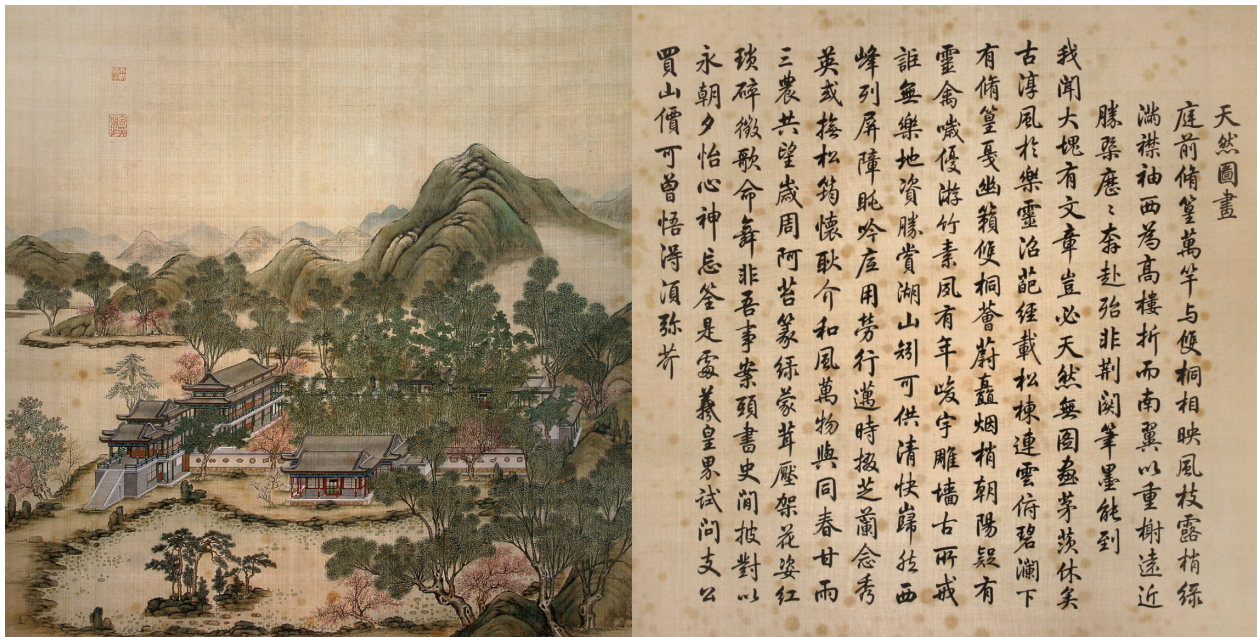 天然圖畫
庭前脩篁萬竿与雙桐相映風枝露梢綠
滿襟袖西為高樓折而南翼以重榭遠近
勝槩歷〻奔赴殆非荊関筆墨能到
我聞大塊有文章豈必天然無圖畫茅茨休矣
古淳風於樂靈沼葩經載松棟連雲俯碧瀾下
有脩篁戛幽籟雙桐薈蔚矗烟梢朝陽疑有
靈禽噦優游竹素夙有年峻宇雕墻古所戒
詎無樂地資勝賞湖山矧可供清快巋然西
峰列屏障眺吟底用勞行邁時掇芝蘭念秀
英或撫松筠懷耿介和風萬物與同春甘雨
三農共望歲周阿苔篆綠蒙茸壓架花姿紅
瑣碎徵歌命舞非吾事案頭書史閒披對以
永朝夕怡心神忘筌是處羲皇界試問支公
買山價可曾悟得須彌芥